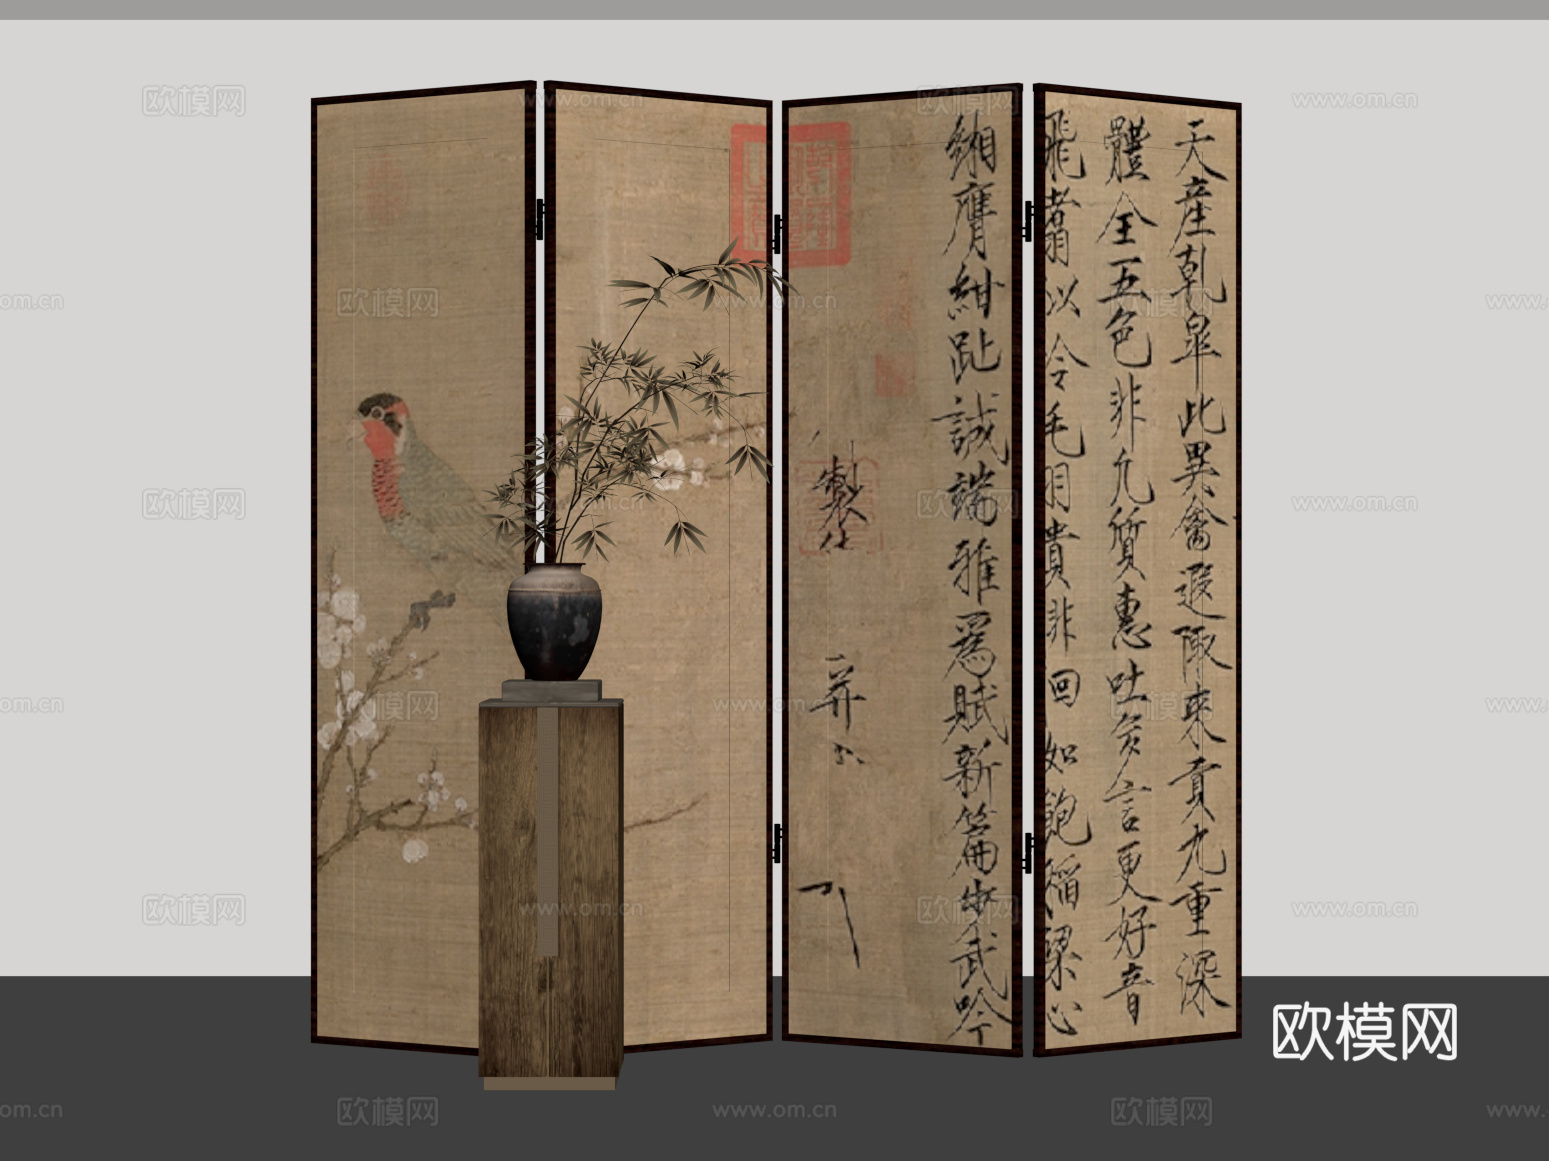 天產乾皋此異禽遐陬來貢九重深
體全五色非凡質惠吐多言更好音
飛翥以令毛羽貴非回如飽稻粱心
緗膺紺趾誠端雅爲賦新篇步武吟
製
并
欧模网
www.om.cn